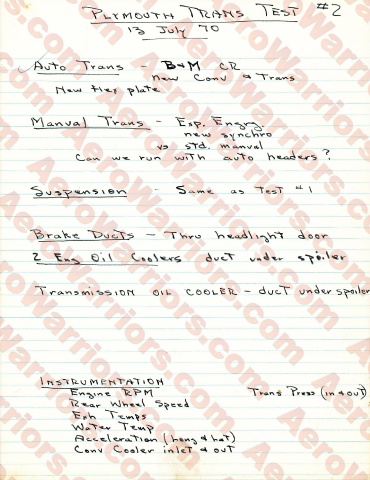 PLYMOUTH TRANS TEST #2
13 July 70
Auto Trans - B&M CR
new Conv & Trans
New flex plate
Manual Trans - Esp. Engrg.
new synchro
vs std. manual
Can we run with auto headers?
Suspension - Same as Test #1
Brake Ducts - Thru headlight door
2 Eng Oil Coolers duct under spoiler
Transmission OIL COOLER - duct under spoiler
INSTRUMENTATION
Engine RPM Trans Press (in & out)
Rear Wheel Speed
Exh Temps
Water Temp
Acceleration (long & lat)
Conv Cooler inlet & out
AeroWarriors.com